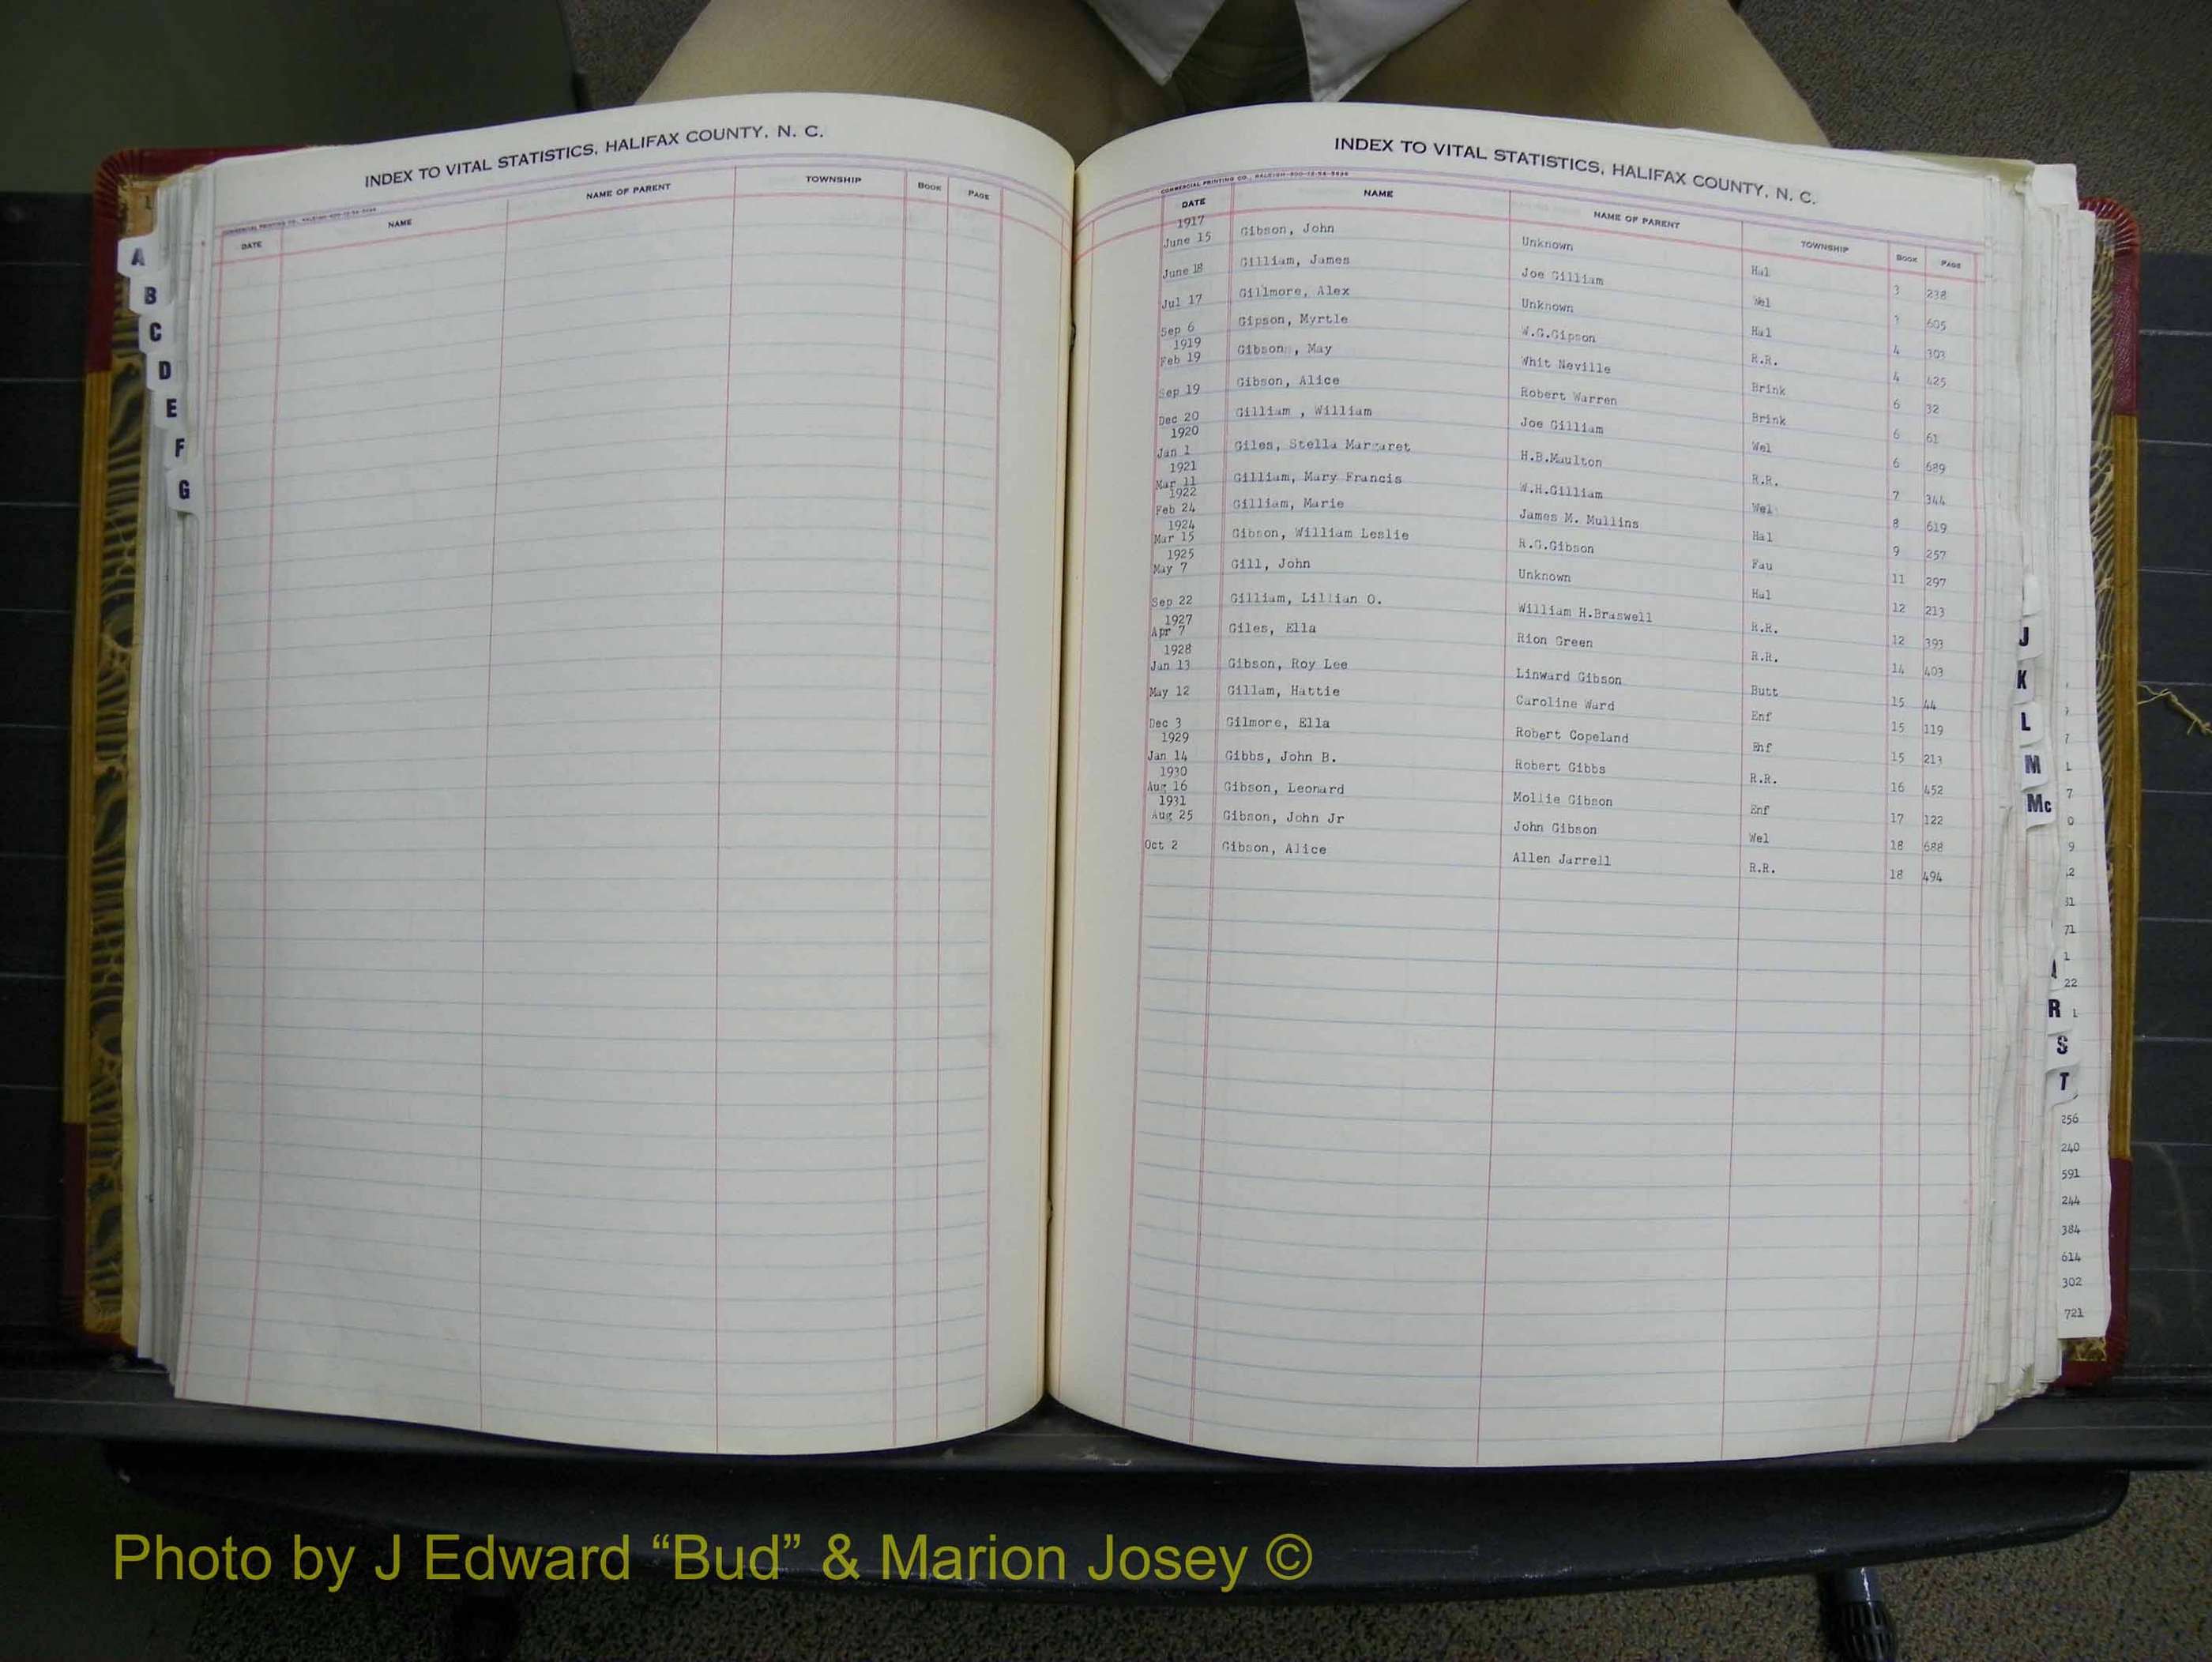 INDEX TO VITAL STATISTICS, HALIFAX COUNTY, N. C.
DATE NAME NAME OF PARENT TOWNSHIP BOOK PAGE
A
B
C
D
E
F
G
INDEX TO VITAL STATISTICS, HALIFAX COUNTY, N. C.
DATE NAME NAME OF PARENT TOWNSHIP BOOK PAGE
1917
June 15 Gibson, John Unknown Hal 3 238
June 18 Gilliam, James Joe Gilliam Wel 3 605
Jul 17 Gillmore, Alex Unknown Hal 4 303
Sep 6 Gipson, Myrtle W.G.Gipson R.R. 4 425
1919
Feb 19 Gibson, May Whit Neville Brink 6 32
Sep 19 Gibson, Alice Robert Warren Brink 6 61
Dec 20 Gilliam , William Joe Gilliam Wel 6 689
1920
Jan 1 Giles, Stella Margaret H.B.Maulton R.R. 7 344
1921
Mar 11 Gilliam, Mary Francis W.H.Gilliam Wel 8 619
1922
Feb 24 Gilliam, Marie James M. Mullins Hal 9 257
1924
Mar 15 Gibson, William Leslie R.G.Gibson Fau 11 297
1925
May 7 Gill, John Unknown Hal 12 213
Sep 22 Gilliam, Lillian O. William H.Braswell R.R. 12 393
1927
Apr 7 Giles, Ella Rion Green R.R. 14 403
1928
Jan 13 Gibson, Roy Lee Linward Gibson Butt 15 44
May 12 Gillam, Hattie Caroline Ward Enf 15 119
Dec 3 Gilmore, Ella Robert Copeland Enf 15 213
1929
Jan 14 Gibbs, John B. Robert Gibbs R.R. 16 452
1930
Aug 16 Gibson, Leonard Mollie Gibson Enf 17 122
1931
Aug 25 Gibson, John Jr John Gibson Wel 18 688
Oct 2 Gibson, Alice Allen Jarrell R.R. 18 494
J
K
L
M
Mc
R
S
T
22
256
240
591
244
384
614
302
721
Photo by J Edward “Bud” & Marion Josey ©